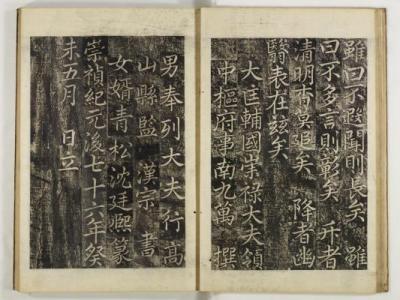 雖曰不遐聞則長矣雖
曰不多言則彰矣 升者
清明杳漠追矣 降者幽
翳表在玆矣
大匡輔國崇祿大夫領
中樞府事南九萬 撰
男奉列大夫行高
山縣監 漢宗 書
女婿青松沈廷熙篆
崇禎紀元後七十六年癸
未五月 日立